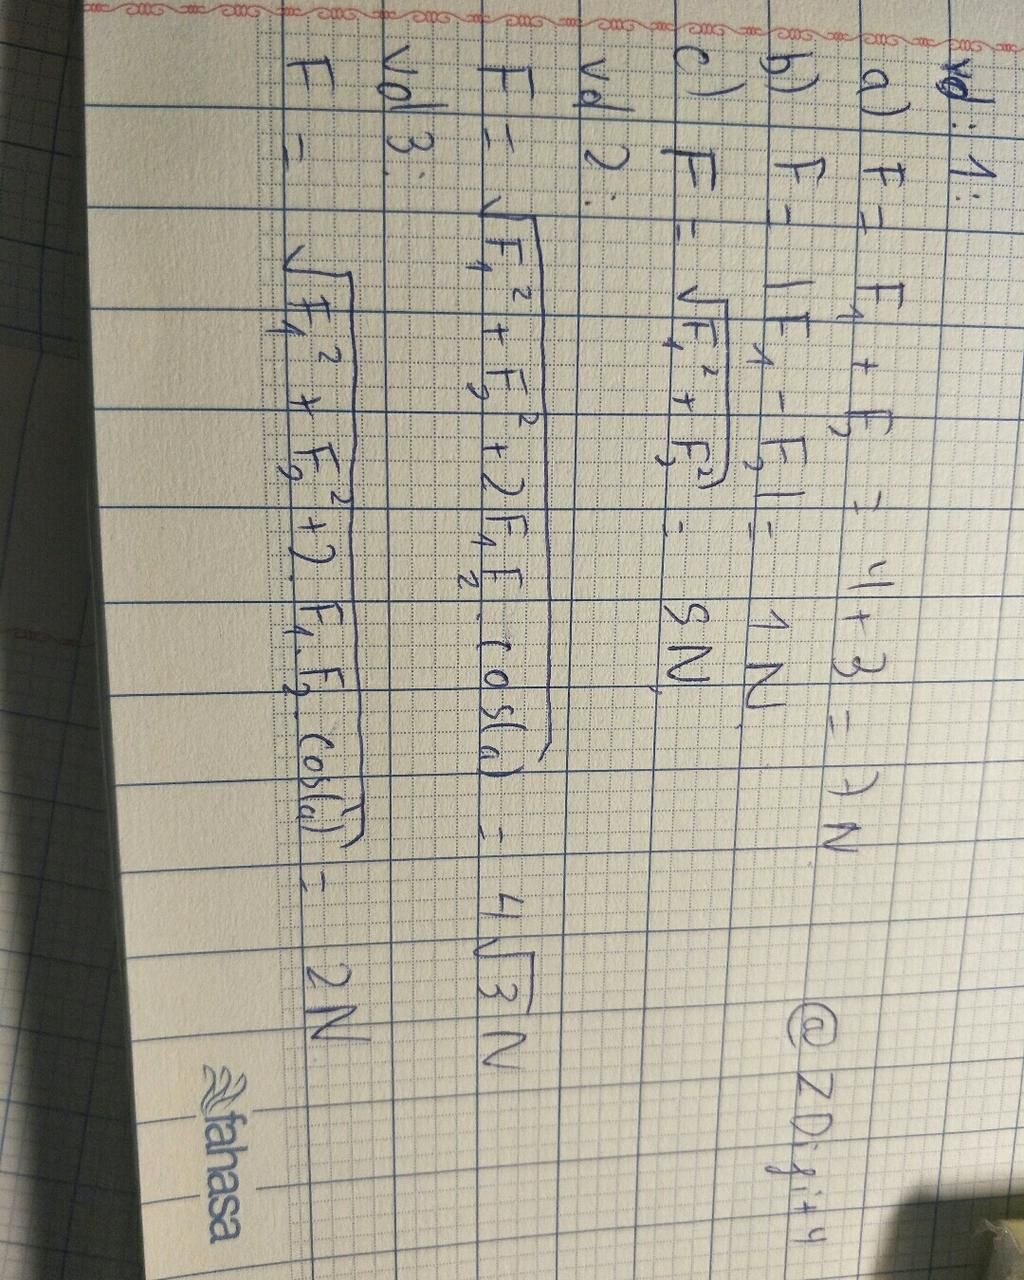 vd: 1:
a) F = F₁ + F₂ = 4 + 3 = 7N
b) F = |F₁ - F₂| = 1N
c) F = √(F₁² + F₂²) = 5N
vd 2:
F = √(F₁² + F₂² + 2F₁F₂.cos(a)) = 4√3 N
vd 3:
F = √(F₁² + F₂² + 2.F₁.F₂.cos(a)) = 2N
@ZDigit4
fahasa